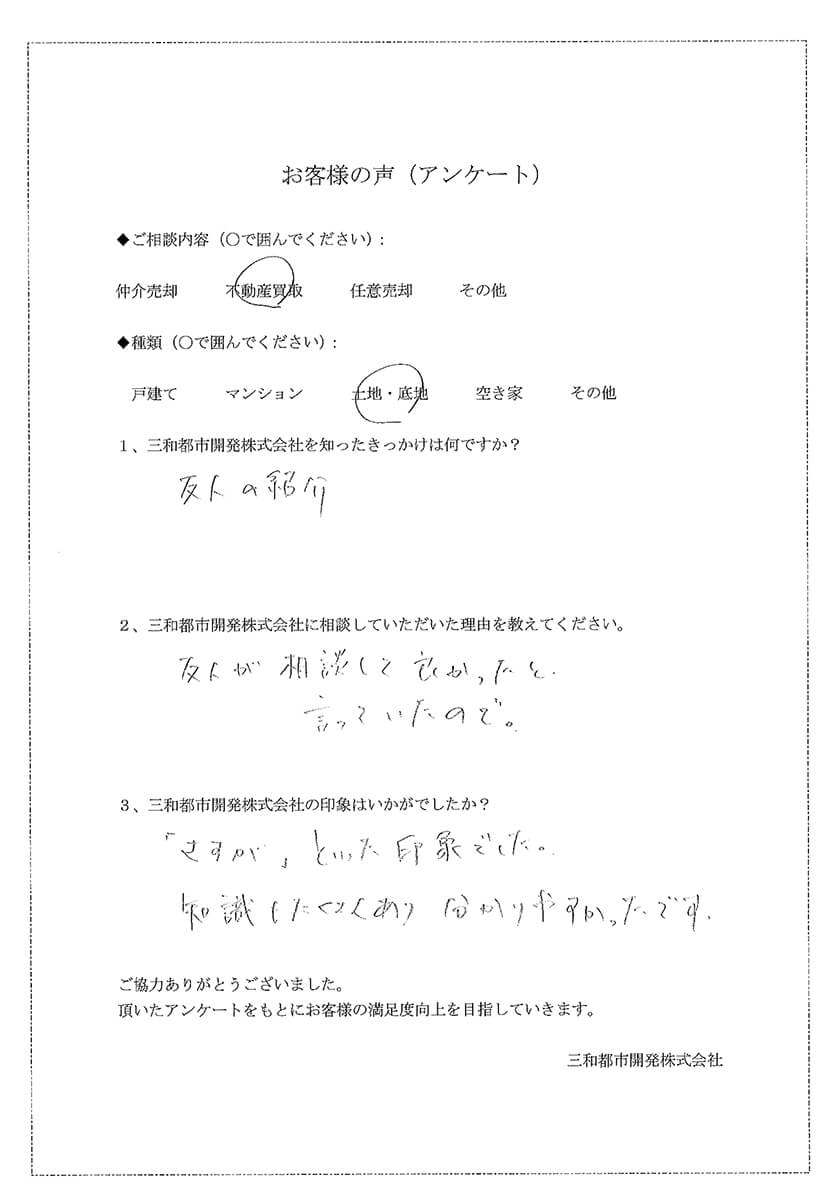 お客様の声（アンケート）
◆ご相談内容（〇で囲んでください）:
仲介売却　不動産買取　任意売却　その他
◆種類（〇で囲んでください）:
戸建て　マンション　土地・底地　空き家　その他
１、三和都市開発株式会社を知ったきっかけは何ですか？
友人の紹介
２、三和都市開発株式会社に相談していただいた理由を教えてください。
友人が相談して良かったと
言っていたので。
３、三和都市開発株式会社の印象はいかがでしたか？
「さすが」といった印象でした。
知識もたくさんあり分かりやすかったです。
ご協力ありがとうございました。
頂いたアンケートをもとにお客様の満足度向上を目指していきます。
三和都市開発株式会社